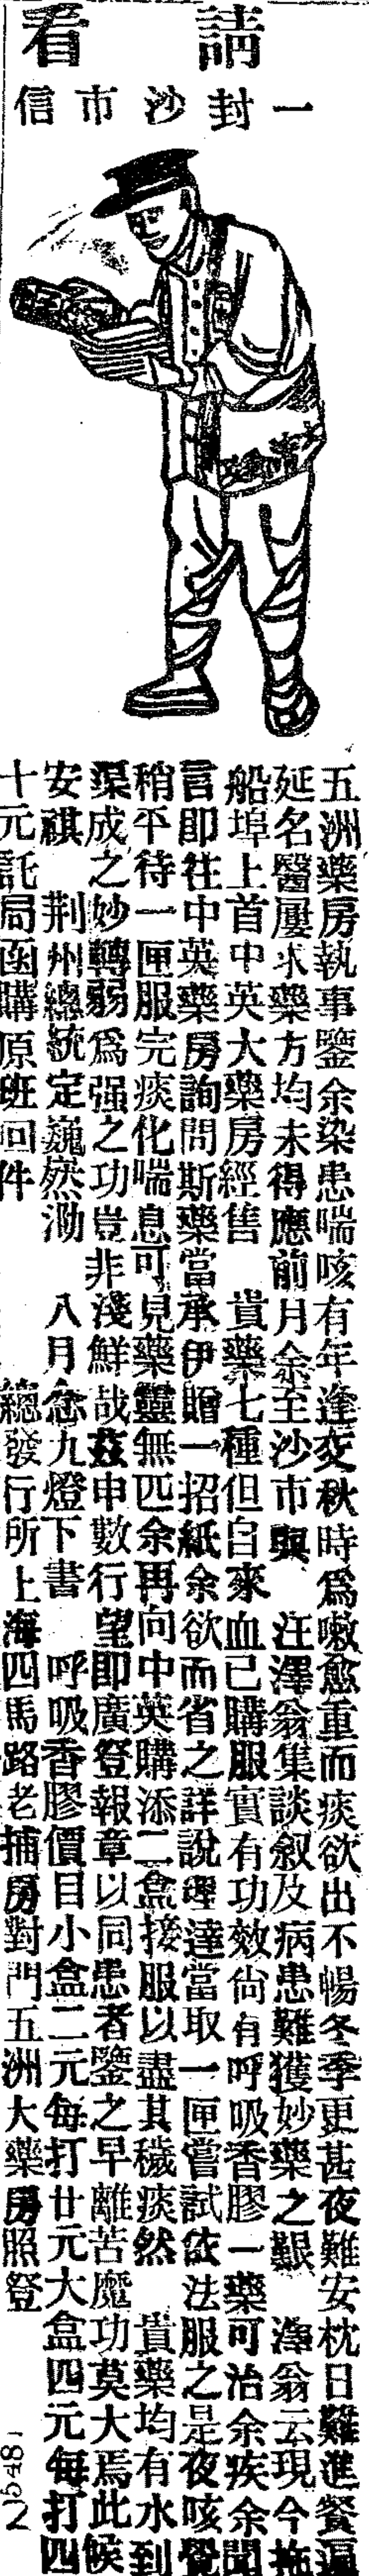 請看
一封沙市信
五洲藥房執事鑒余染患喘咳有年逢交秋時爲嗽愈重而痰欲出不暢冬季更甚夜難安枕日難進餐遍
延名醫屢求藥方均未得應前月余至沙市與 汪澤翁集談叙及病患難獲妙藥之艱 澤翁云現今拖
船埠上首中英大藥房經售 貴藥七種但自來血已購服實有功效尙有呼吸香膠一藥可治余疾余聞
言即往中英藥房詢問斯藥當承伊贈一招紙余欲而省之詳說理達當取一匣嘗試依法服之是夜咳覺
稍平待一匣服完痰化喘息可見藥靈無匹余再向中英購添二盒接服以盡其穢痰然 貴藥均有水到
渠成之妙轉弱爲强之功豈非淺鮮哉茲申數行望即廣登報章以同患者鑒之早離苦魔功莫大焉此候
安祺 荆州總統定巍然泐 八月念九燈下書 呼吸香膠價目小盒二元每打廿元大盒四元每打四
十元託局函購原班回件 總發行所上海四馬路老捕房對門五洲大藥房照登